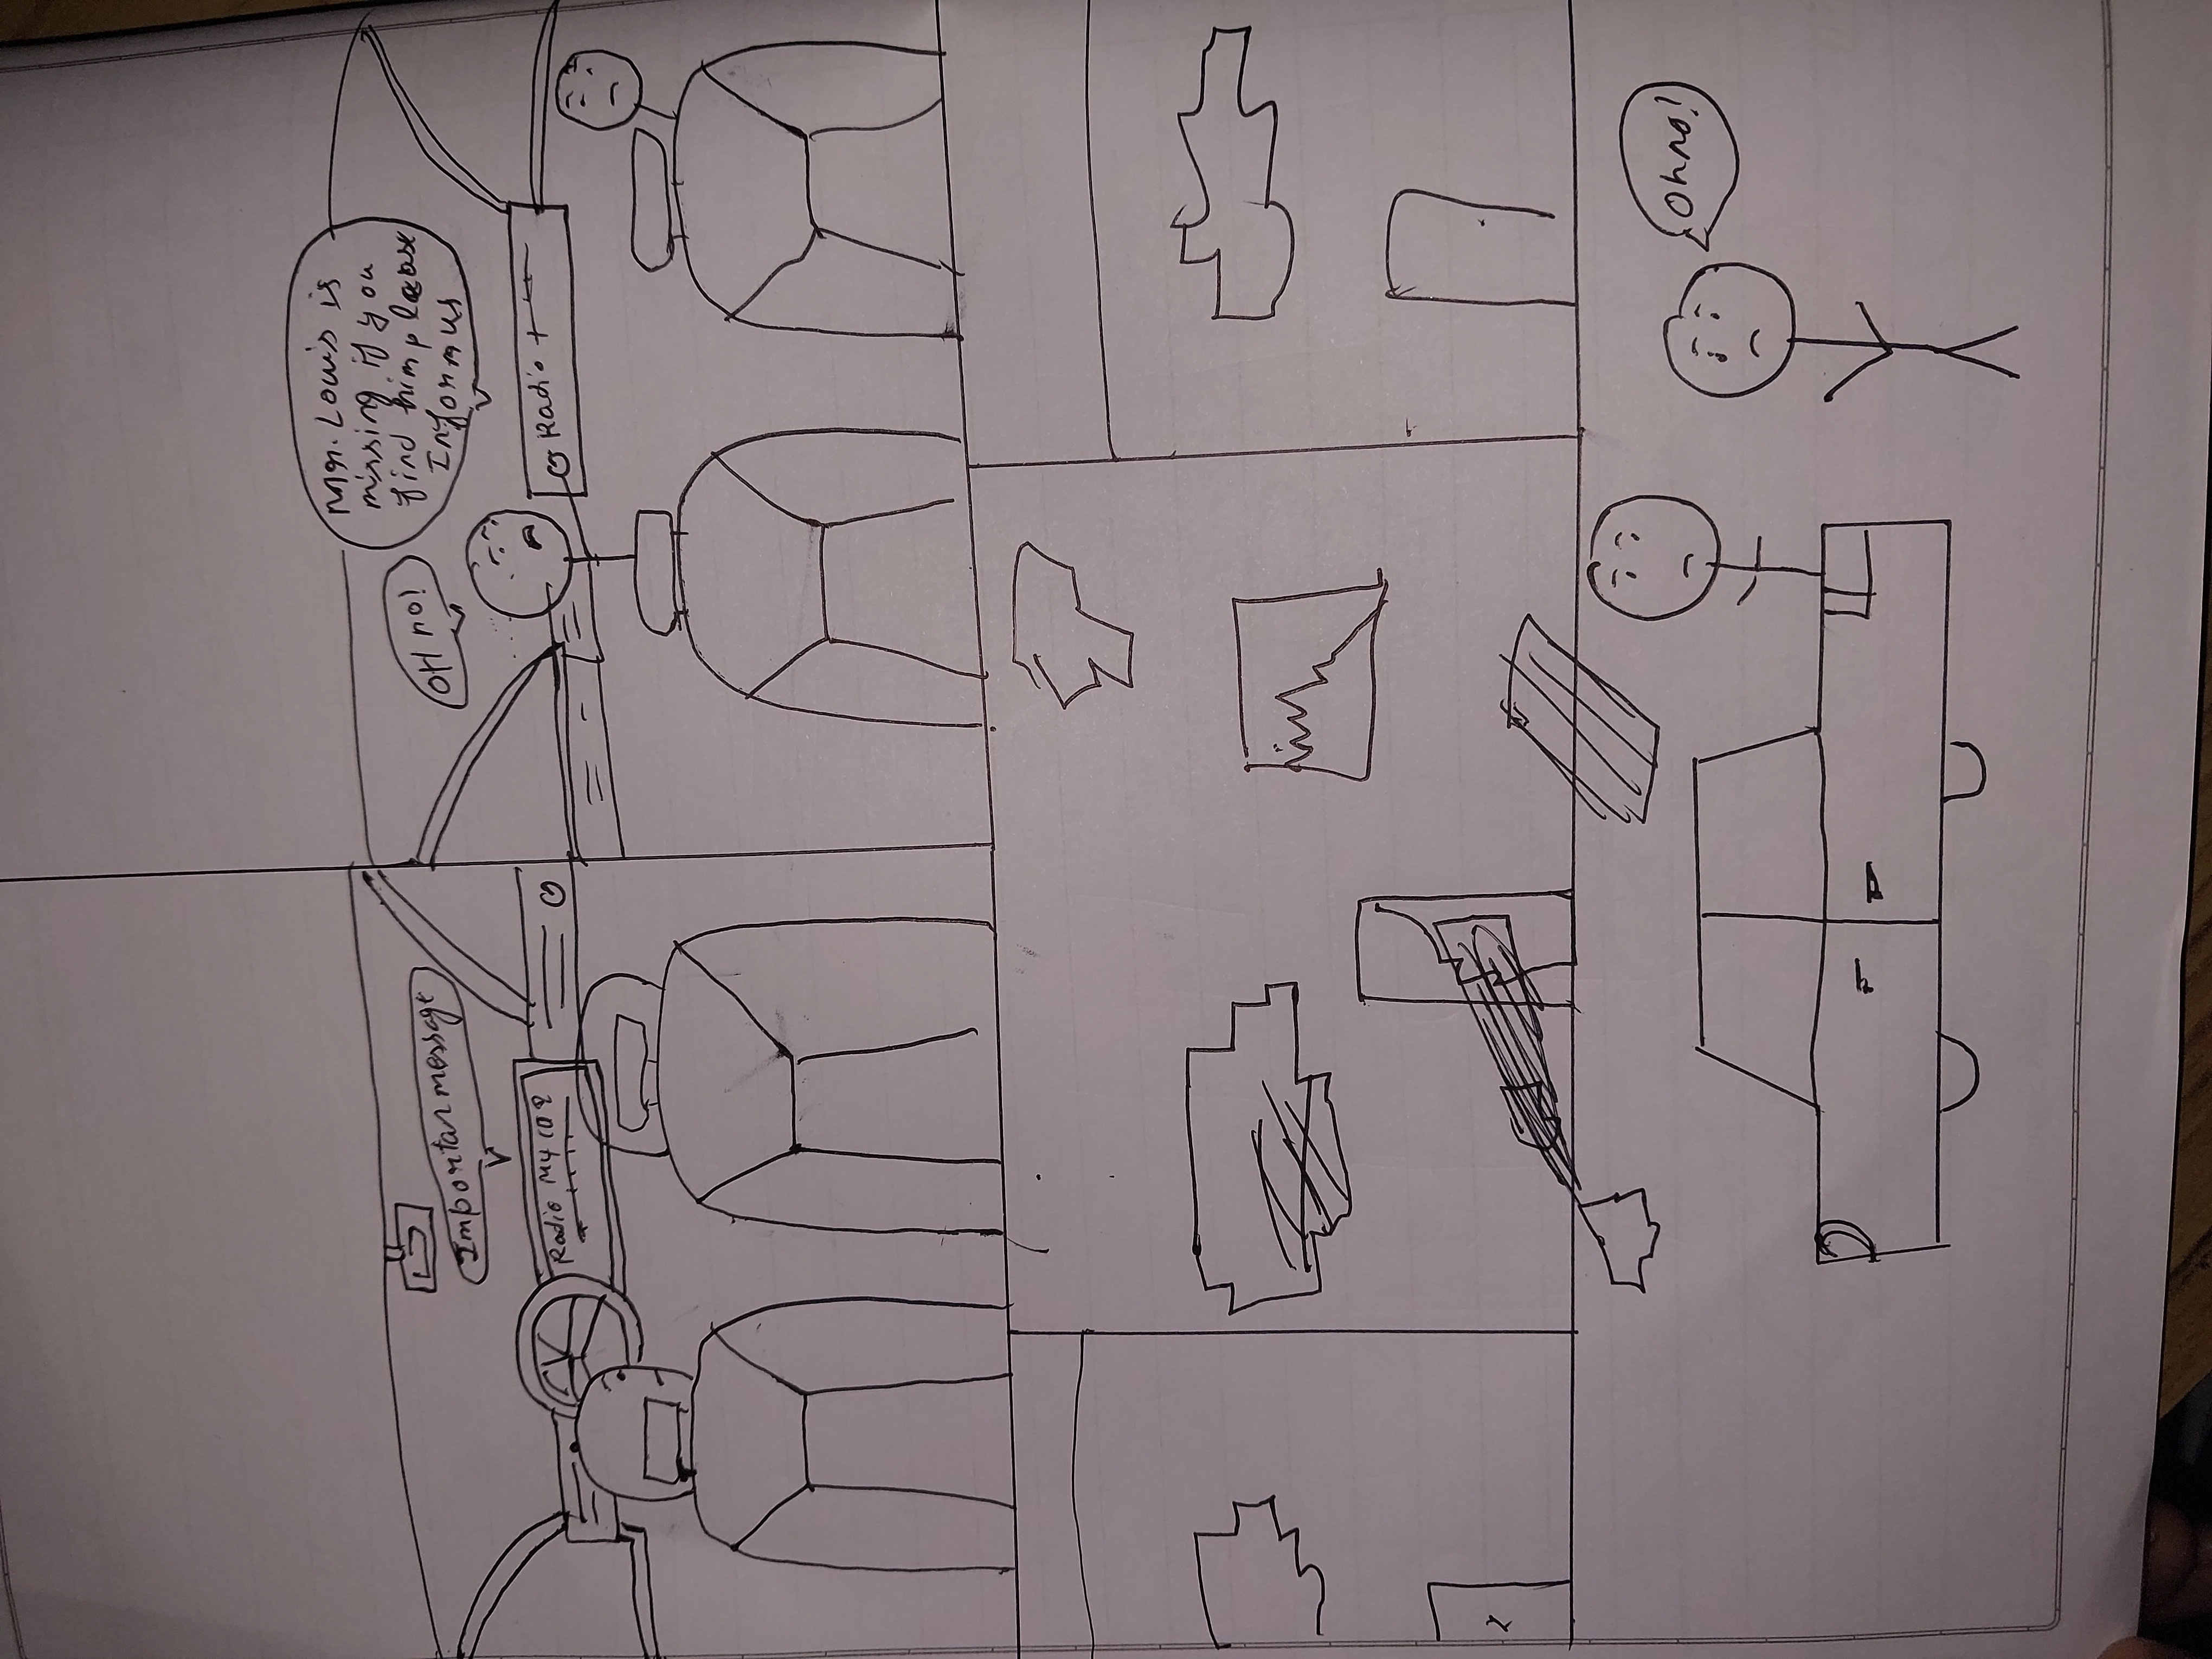 Importan message
Radio
OH no!
Mr. Louis is
missing if you
find him please
Inform us
Radio
Oh no!